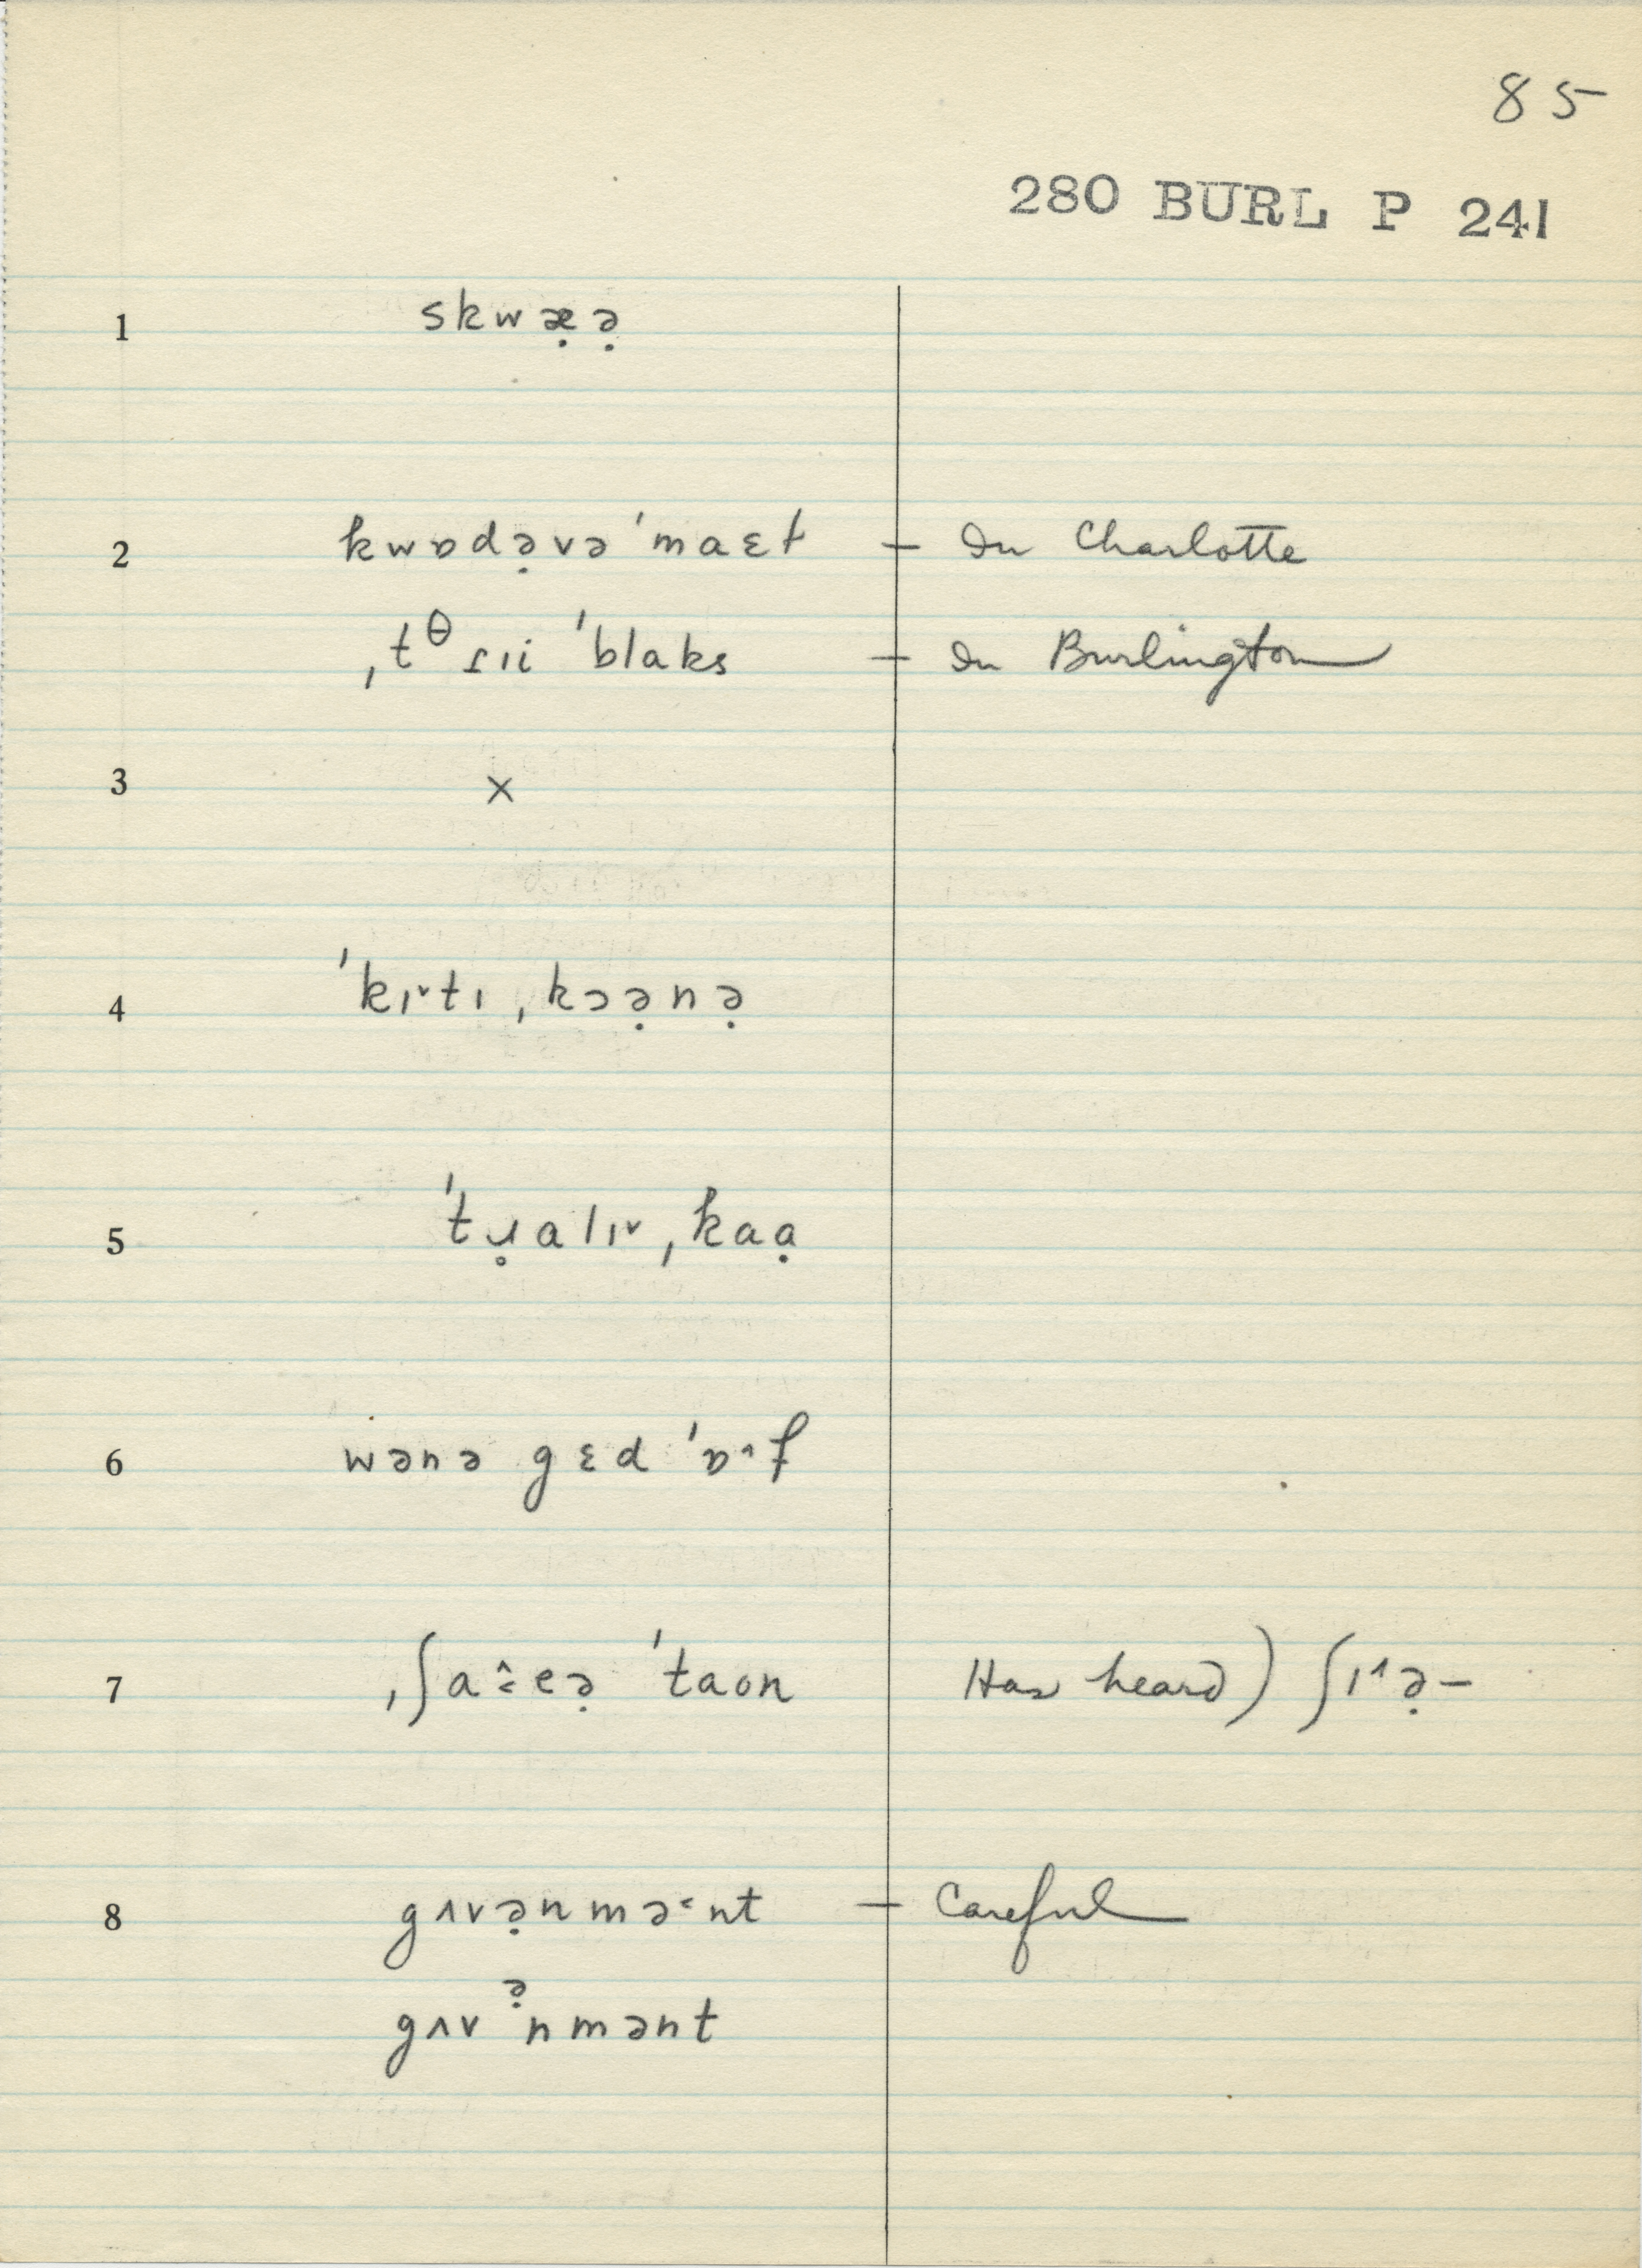 85
280 BURL P 241
1 skwæ̣ə̣
2 kwɒdə̣və ˈmaɛt — In Charlotte
ˌtᶿɾɪi ˈblaks — In Burlington
3 ×
4 ˈkɪ˅tɪ ˌkɔə̣nə̣
5 ˈtɹ̣̥alɪ˅ ˌkaạ
6 wənə gɛd ˈɒ˄f
7 ˌʃa˄˂eə̣ ˈtaon Has heard) ʃɪ˄ə̣–
8 gʌvə̣nmə˂nt — Careful
gʌvᵊ̣nmənt